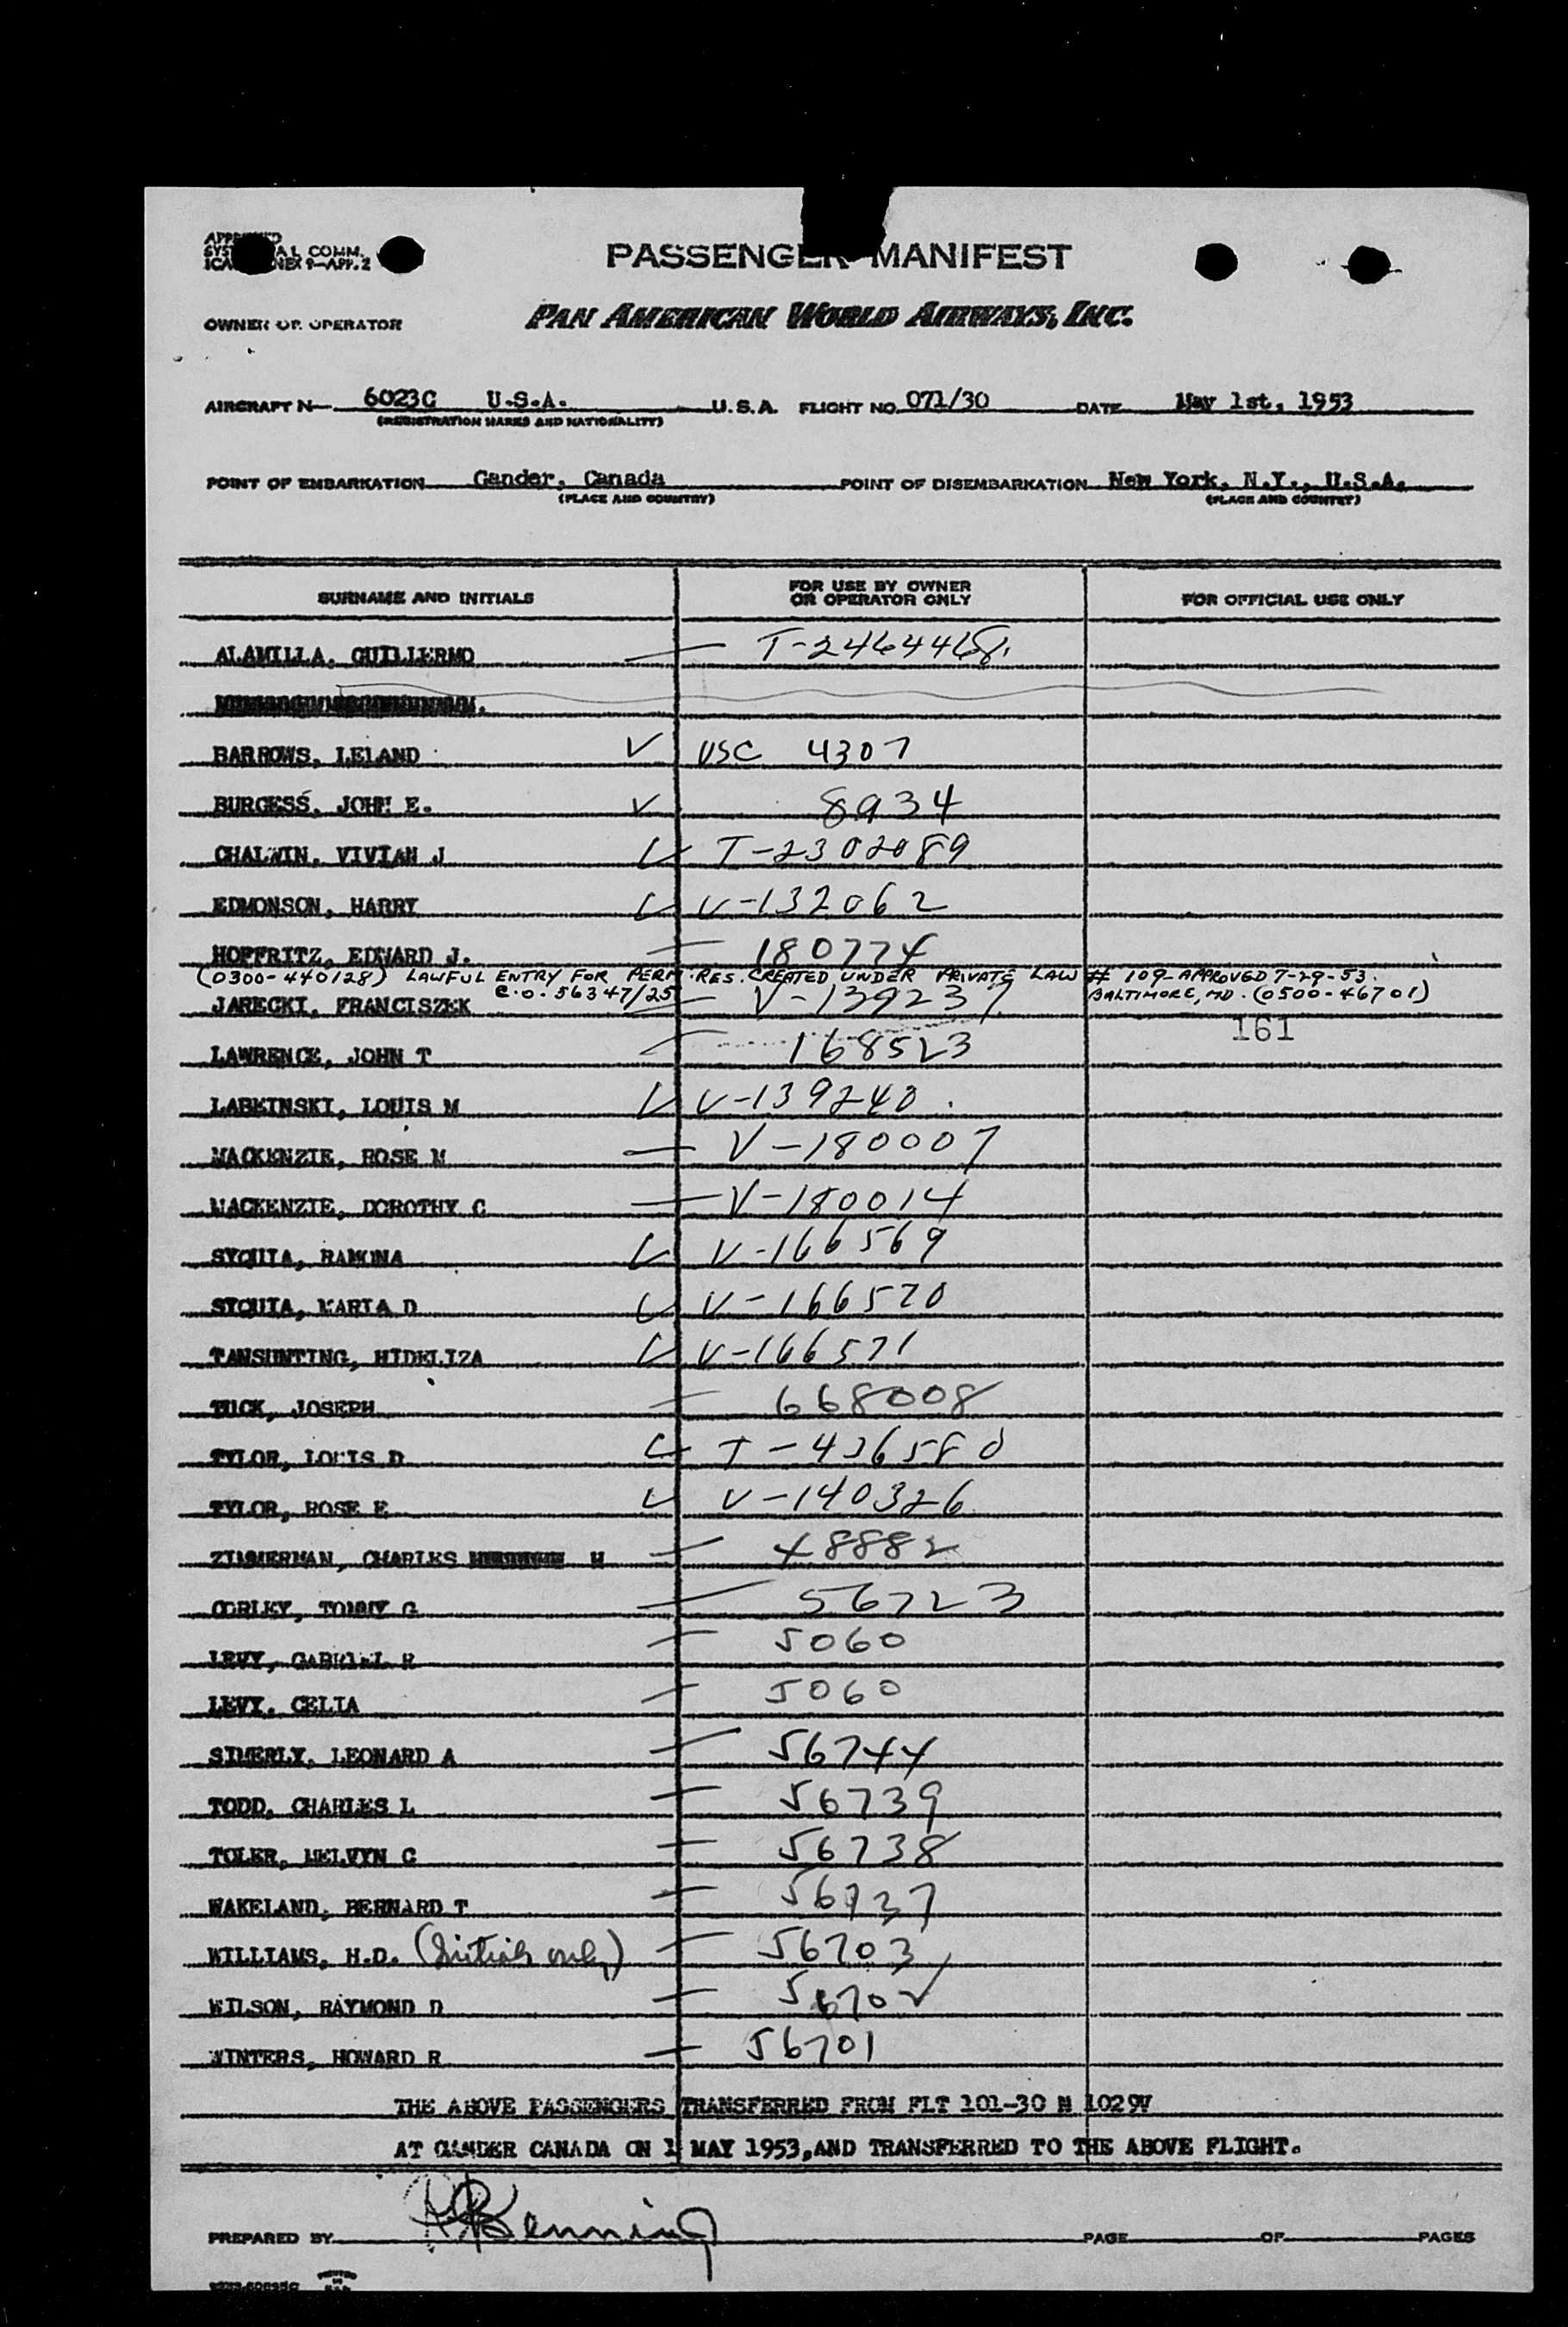 PASSENGER MANIFEST
OWNER OR OPERATOR PAN AMERICAN WORLD AIRWAYS, INC.
AIRCRAFT N 6023C U.S.A. U.S.A. FLIGHT NO. 071/30 DATE May 1st, 1953
(REGISTRATION MARKS AND NATIONALITY)
POINT OF EMBARKATION Gander, Canada POINT OF DISEMBARKATION New York, N.Y., U.S.A.
(PLACE AND COUNTRY) (PLACE AND COUNTRY)
SURNAME AND INITIALS FOR USE BY OWNER OR OPERATOR ONLY FOR OFFICIAL USE ONLY
ALAMILLA, GUILLERMO T-2464468
BARROWS, LELAND USC 4307
BURGESS, JOHN E. 8934
CHALWIN, VIVIAN J T-2302089
EDMONSON, HARRY V-132062
HOPFRITZ, EDWARD J. 180774
(0300-440128) LAWFUL ENTRY FOR PERM. RES. CREATED UNDER PRIVATE LAW # 109-APPROVED 7-29-53.
C.O. 56347/25 BALTIMORE, MD. (0500-46701)
JARECKI, FRANCISZEK V-139237
161
LAWRENCE, JOHN T 168523
LABEINSKI, LOUIS M V-139240
MACKENZIE, ROSE M V-180007
MACKENZIE, DOROTHY C V-180014
SYQUIA, RAMONA V-166569
SYQUIA, MARIA D V-166570
TANSUNTING, HIDELIZA V-166571
TUCK, JOSEPH 668008
TYLOR, LOUIS D T-436580
TYLOR, ROSE E V-140326
ZIMMERMAN, CHARLES H 48882
CORLEY, TOMMY G 56723
LEVY, GABRIEL H 5060
LEVY, CELIA 5060
SIMERLY, LEONARD A 56744
TODD, CHARLES L 56739
TOLER, MELVYN C 56738
WAKELAND, BERNARD T 56737
WILLIAMS, H.D. (Initials only) 56703
WILSON, RAYMOND D 56702
WINTERS, HOWARD R 56701
THE ABOVE PASSENGERS TRANSFERRED FROM FLT 101-30 N 1029V
AT GANDER CANADA ON 1 MAY 1953, AND TRANSFERRED TO THE ABOVE FLIGHT.
PREPARED BY PAGE OF PAGES